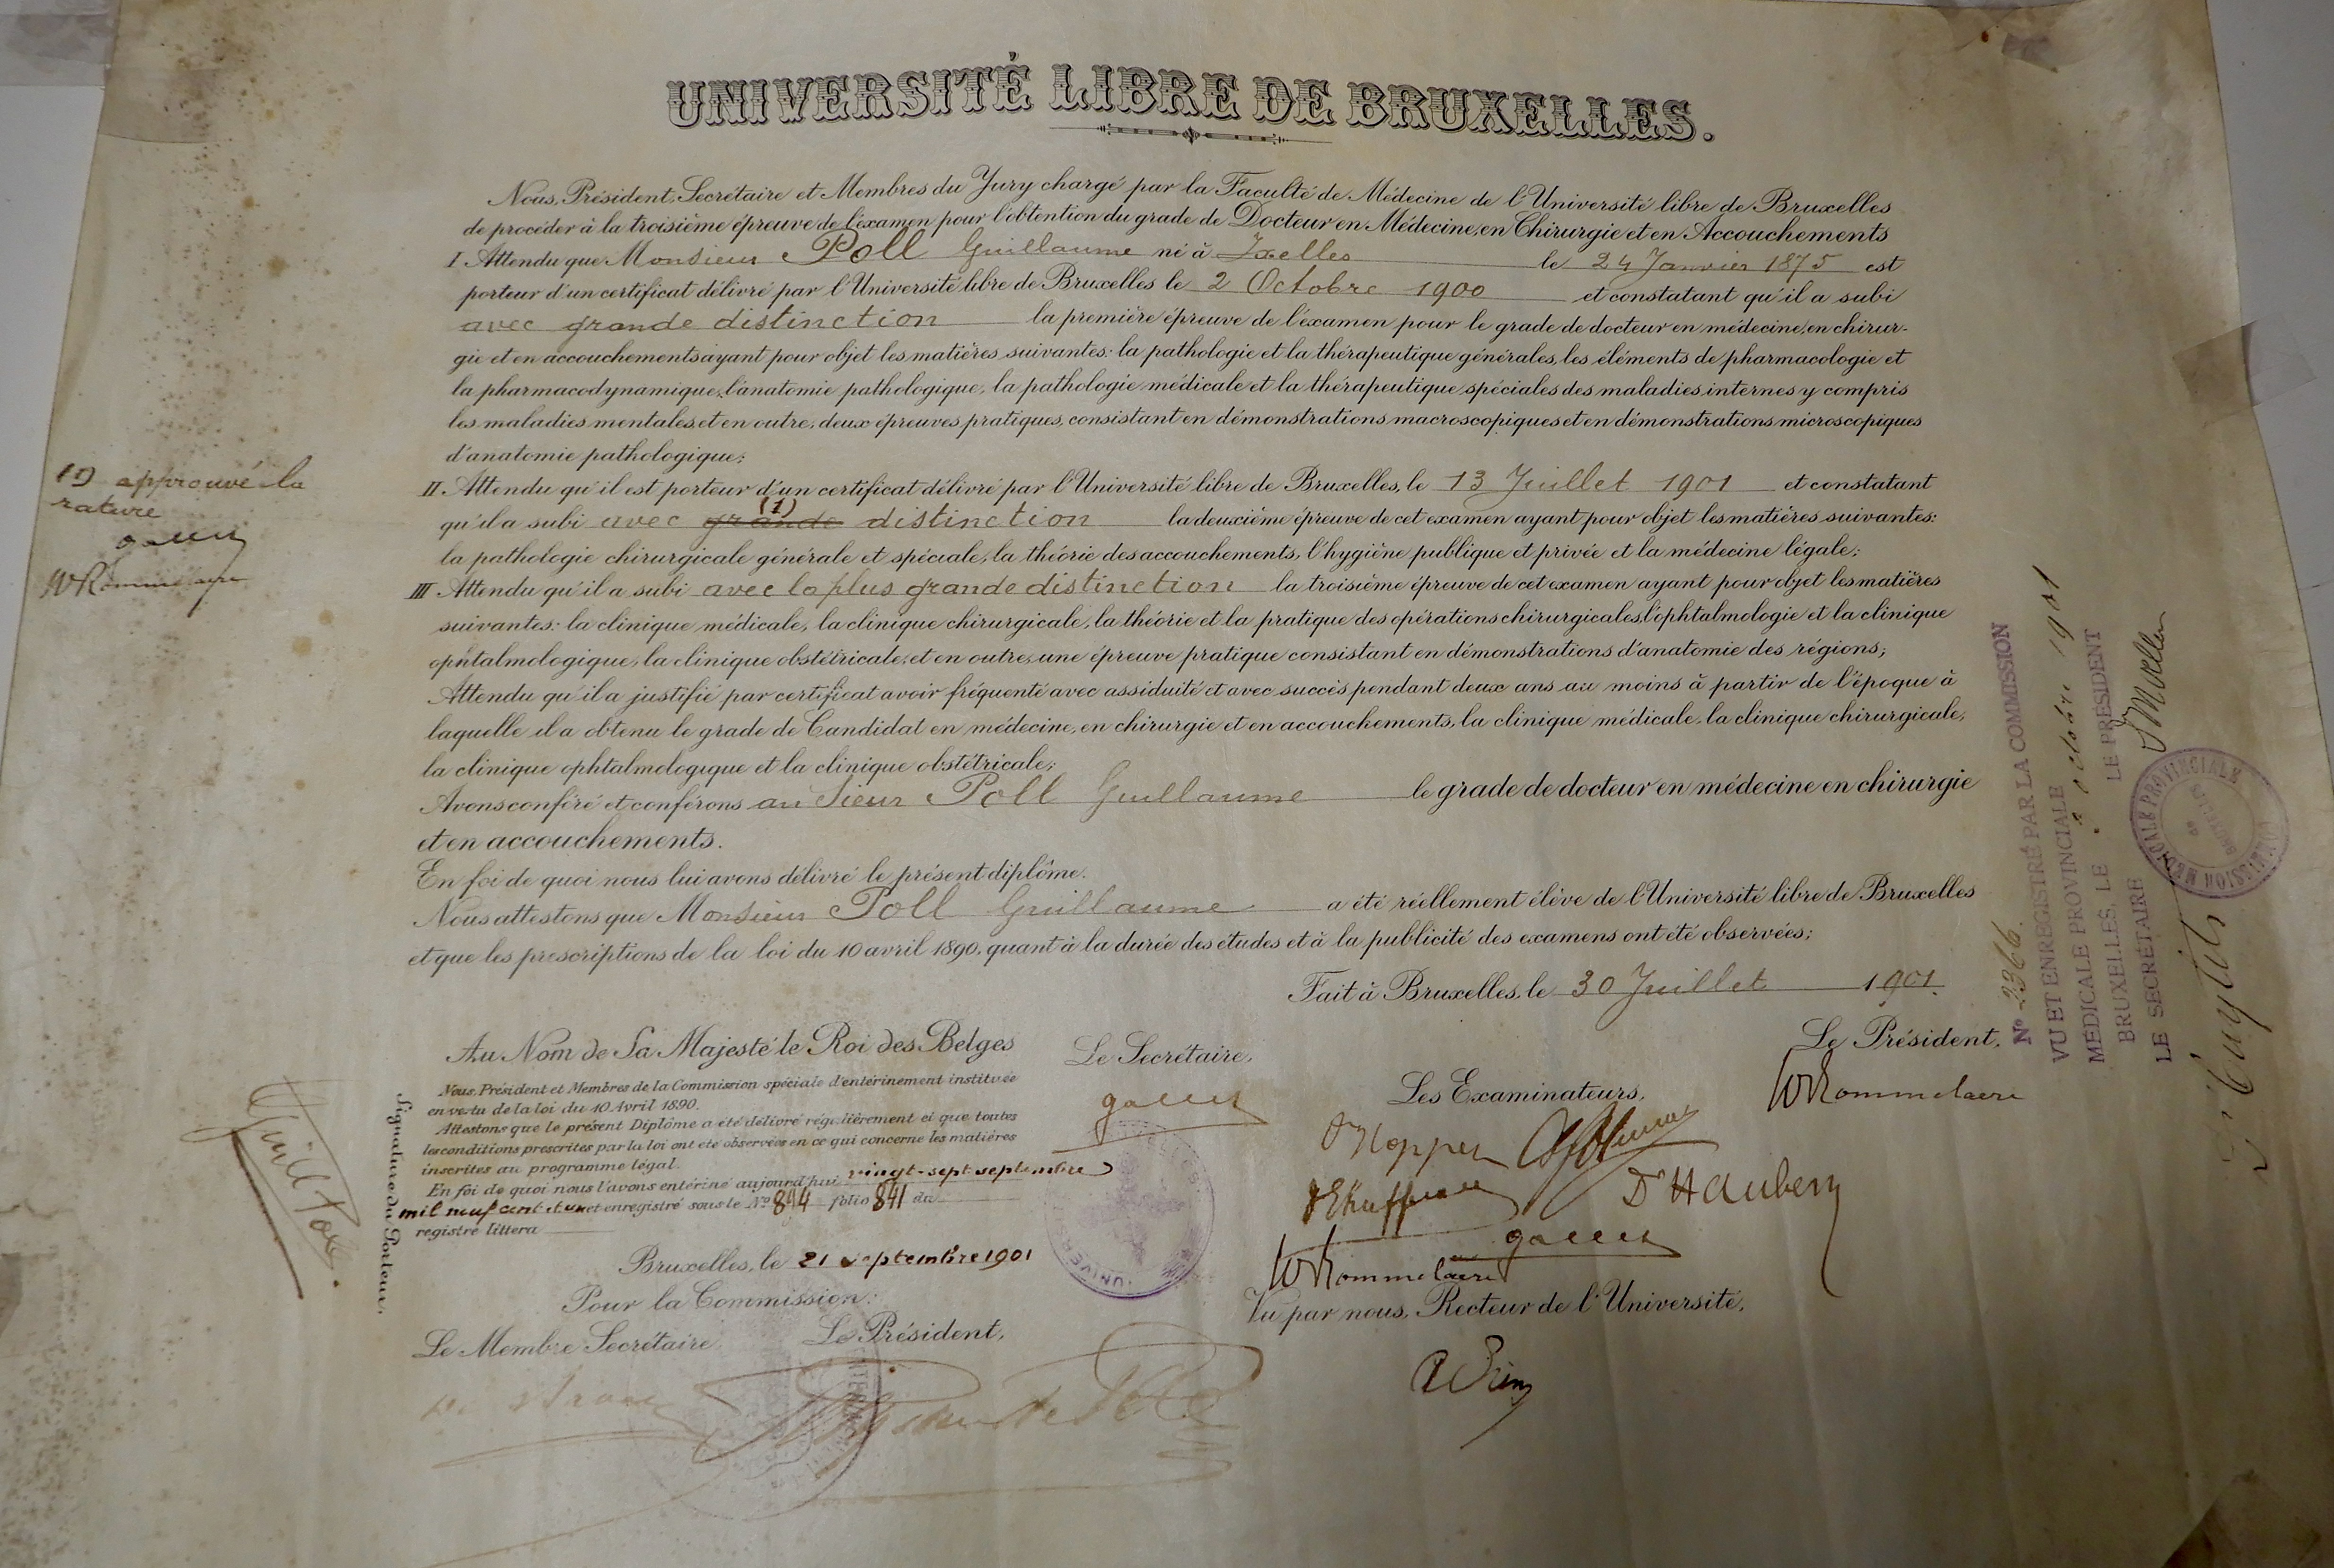 UNIVERSITÉ LIBRE DE BRUXELLES.
Nous, Président, Secrétaire et Membres du Jury chargé par la Faculté de Médecine de l'Université libre de Bruxelles
de procéder à la troisième épreuve de l'examen pour l'obtention du grade de Docteur en Médecine, en Chirurgie et en Accouchements
I Attendu que Monsieur Poll Guillaume né à Ixelles le 24 Janvier 1875 est
porteur d'un certificat délivré par l'Université libre de Bruxelles le 2 Octobre 1900 et constatant qu'il a subi
avec grande distinction la première épreuve de l'examen pour le grade de docteur en médecine, en chirur-
gie et en accouchements ayant pour objet les matières suivantes: la pathologie et la thérapeutique générales, les éléments de pharmacologie et
la pharmacodynamique, l'anatomie pathologique, la pathologie médicale et la thérapeutique spéciales des maladies internes y compris
les maladies mentales, et en outre, deux épreuves pratiques, consistant en démonstrations macroscopiques et en démonstrations microscopiques
d'anatomie pathologique;
II Attendu qu'il est porteur d'un certificat délivré par l'Université libre de Bruxelles, le 13 Juillet 1901 et constatant
qu'il a subi avec grande (1) distinction la deuxième épreuve de cet examen ayant pour objet les matières suivantes:
la pathologie chirurgicale générale et spéciale, la théorie des accouchements, l'hygiène publique et privée et la médecine légale;
III Attendu qu'il a subi avec la plus grande distinction la troisième épreuve de cet examen ayant pour objet les matières
suivantes: la clinique médicale, la clinique chirurgicale, la théorie et la pratique des opérations chirurgicales, l'ophtalmologie et la clinique
ophtalmologique, la clinique obstétricale, et en outre, une épreuve pratique consistant en démonstrations d'anatomie des régions;
Attendu qu'il a justifié par certificat avoir fréquenté avec assiduité et avec succès pendant deux ans au moins à partir de l'époque à
laquelle il a obtenu le grade de Candidat en médecine, en chirurgie et en accouchements, la clinique médicale, la clinique chirurgicale,
la clinique ophtalmologique et la clinique obstétricale;
Avons conféré et conférons au Sieur Poll Guillaume le grade de docteur en médecine en chirurgie
et en accouchements.
En foi de quoi nous lui avons délivré le présent diplôme.
Nous attestons que Monsieur Poll Guillaume a été réellement élève de l'Université libre de Bruxelles
et que les prescriptions de la loi du 10 avril 1890, quant à la durée des études et à la publicité des examens ont été observées;
Fait à Bruxelles, le 30 Juillet 1901.
(1) approuvé la
rature
W Rommelaere
Au Nom de Sa Majesté le Roi des Belges
Nous, Président et Membres de la Commission spéciale d'entérinement instituée
en vertu de la loi du 10 Avril 1890.
Attestons que le présent Diplôme a été délivré régulièrement et que toutes
les conditions prescrites par la loi ont été observées en ce qui concerne les matières
inscrites au programme légal.
En foi de quoi nous l'avons entériné aujourd'hui vingt-sept septembre
mil neuf cent et un et enregistré sous le No 844 folio 841 du
registre littera
Bruxelles, le 21 septembre 1901
Pour la Commission:
Le Membre Secrétaire
Le Président,
Signature du Porteur,
Le Secrétaire,
Les Examinateurs,
Dr Hauben
W Rommelaere
Vu par nous, Recteur de l'Université,
Le Président,
W Rommelaere
No 2366.
VU ET ENREGISTRÉ PAR LA COMMISSION
MÉDICALE PROVINCIALE
BRUXELLES, LE octobre 1901
LE SECRÉTAIRE
LE PRÉSIDENT
COMMISSION MÉDICALE PROVINCIALE